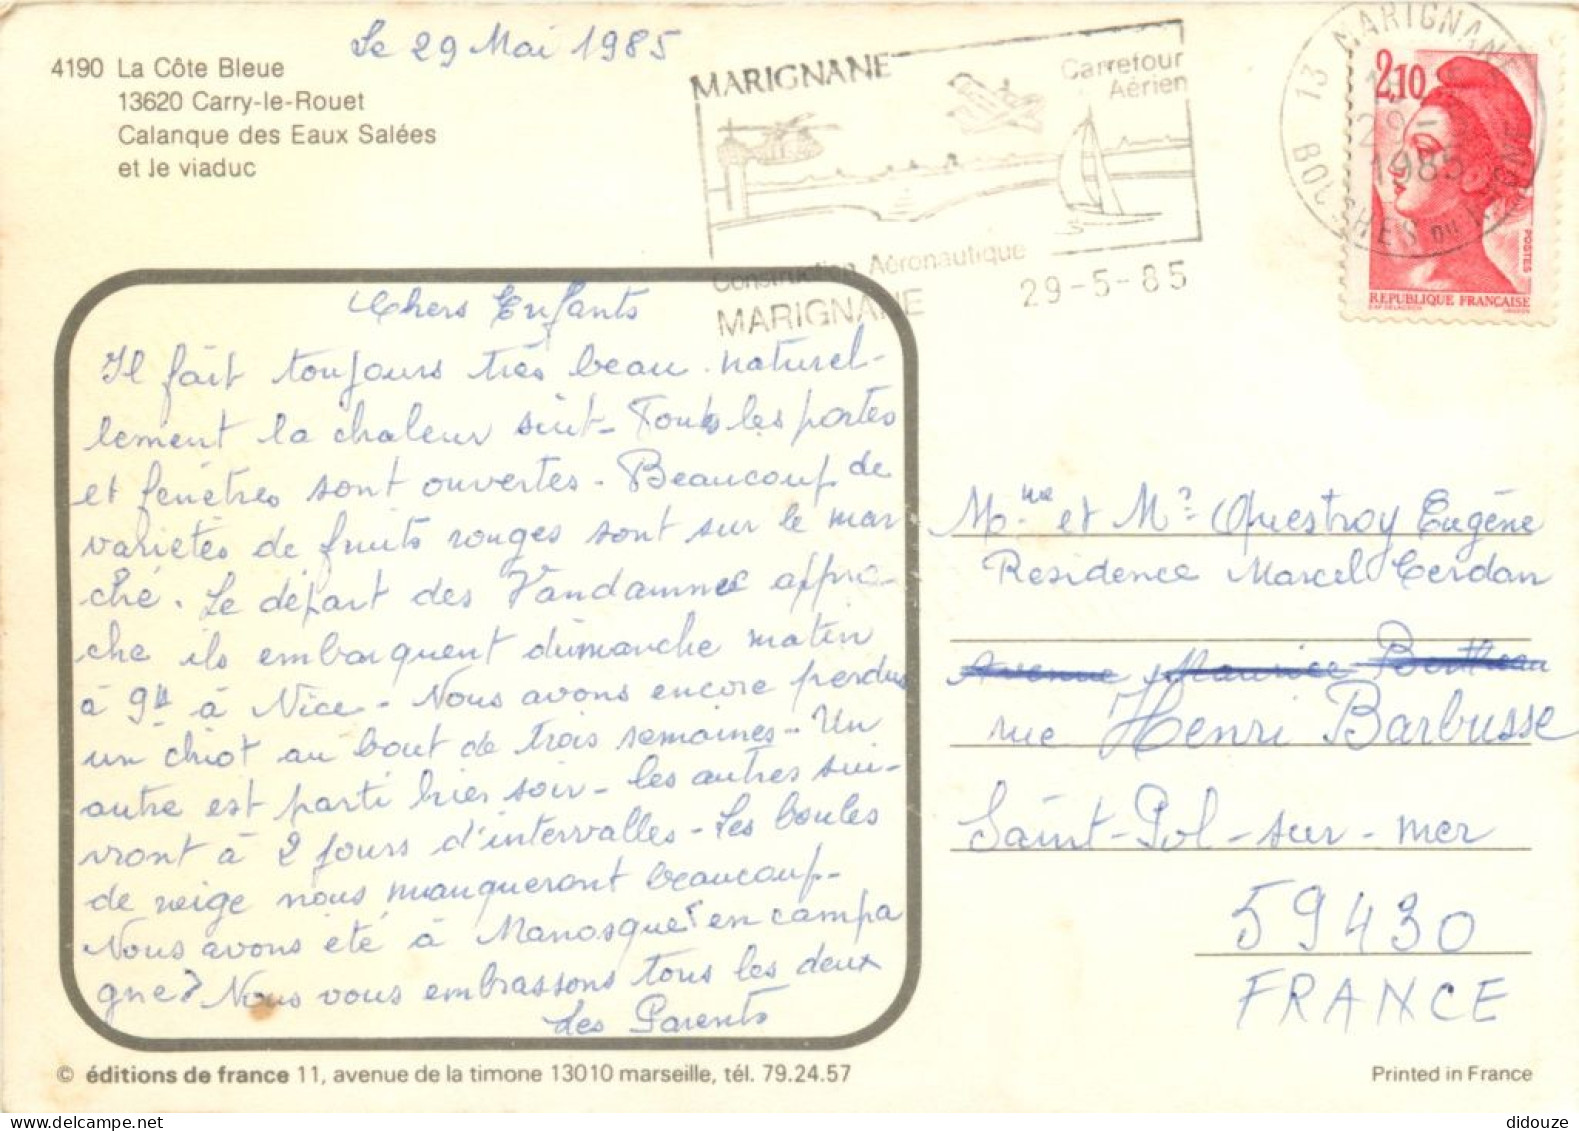 Le 29 Mai 1985
4190 La Côte Bleue
13620 Carry-le-Rouet
Calanque des Eaux Salées
et le viaduc
MARIGNANE
Carrefour
Aérien
Construction Aéronautique
MARIGNANE
29-5-85
13 MARIGNANE
29-5
1985
BOUCHES DU RHONE
2,10
POSTES
REPUBLIQUE FRANÇAISE
Chers Enfants
Il fait toujours très beau. naturel-
lement la chaleur suit - Toutes les portes
et fenêtres sont ouvertes - Beaucoup de
variétés de fruits rouges sont sur le mar
ché. Le départ des Vandamme appro-
che ils embarquent dimanche matin
à 9h à Nice - Nous avons encore perdus
un chiot au bout de trois semaines - Un
autre est parti hier soir - les autres sui-
vront à 2 jours d'intervalles - Les boules
de neige nous manqueront beaucoup -
Nous avons été à Manosque en campa
gne? Nous vous embrassons tous les deux
Les Parents
Mme et Mr Questroy Eugène
Residence Marcel Cerdan
Avenue Maurice Berteau
rue Henri Barbusse
Saint-Pol-sur-mer
59430
FRANCE
© éditions de france 11, avenue de la timone 13010 marseille, tél. 79.24.57
Printed in France
didouze